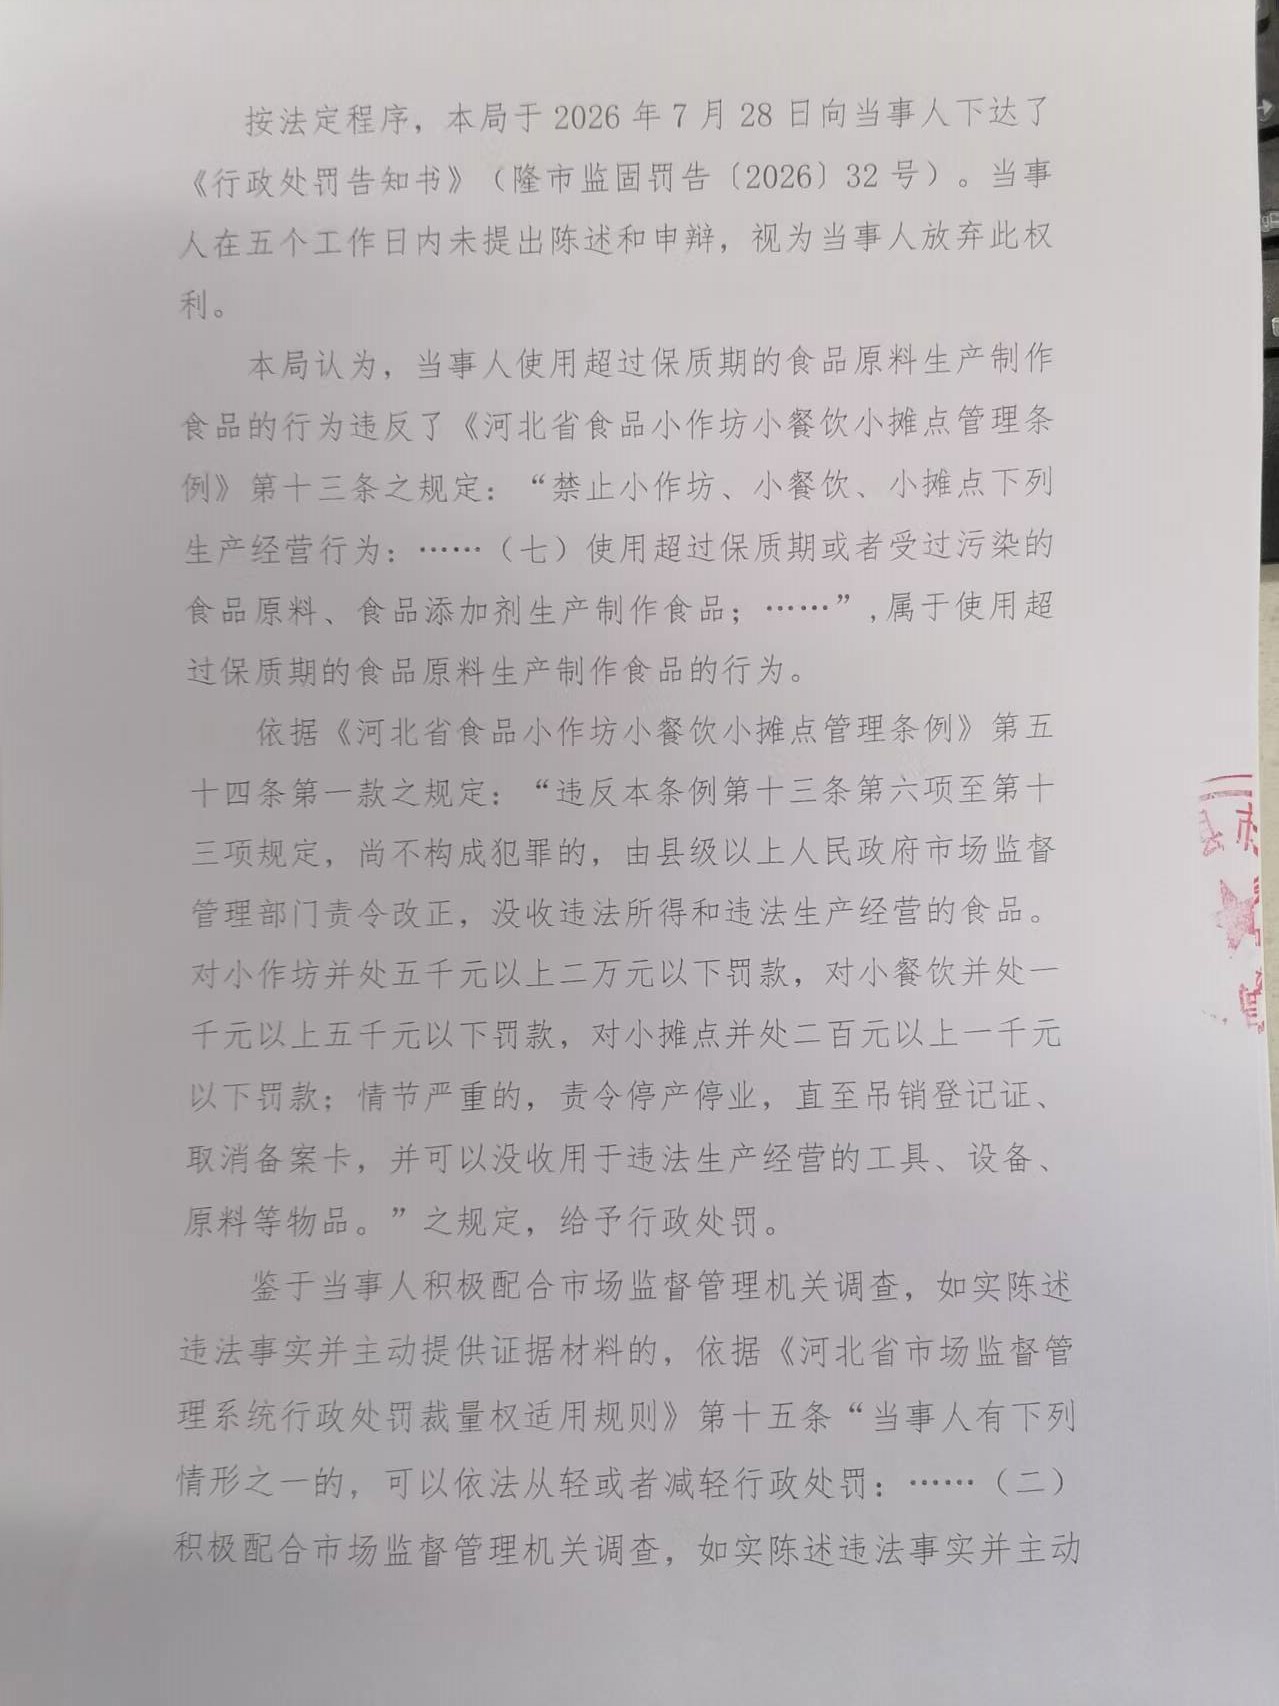 按法定程序，本局于 2026 年 7 月 28 日向当事人下达了
《行政处罚告知书》（隆市监固罚告〔2026〕32 号）。当事
人在五个工作日内未提出陈述和申辩，视为当事人放弃此权
利。
本局认为，当事人使用超过保质期的食品原料生产制作
食品的行为违反了《河北省食品小作坊小餐饮小摊点管理条
例》第十三条之规定：“禁止小作坊、小餐饮、小摊点下列
生产经营行为：……（七）使用超过保质期或者受过污染的
食品原料、食品添加剂生产制作食品；……”,属于使用超
过保质期的食品原料生产制作食品的行为。
依据《河北省食品小作坊小餐饮小摊点管理条例》第五
十四条第一款之规定：“违反本条例第十三条第六项至第十
三项规定，尚不构成犯罪的，由县级以上人民政府市场监督
管理部门责令改正，没收违法所得和违法生产经营的食品。
对小作坊并处五千元以上二万元以下罚款，对小餐饮并处一
千元以上五千元以下罚款，对小摊点并处二百元以上一千元
以下罚款；情节严重的，责令停产停业，直至吊销登记证、
取消备案卡，并可以没收用于违法生产经营的工具、设备、
原料等物品。”之规定，给予行政处罚。
鉴于当事人积极配合市场监督管理机关调查，如实陈述
违法事实并主动提供证据材料的，依据《河北省市场监督管
理系统行政处罚裁量权适用规则》第十五条“当事人有下列
情形之一的，可以依法从轻或者减轻行政处罚：……（二）
积极配合市场监督管理机关调查，如实陈述违法事实并主动